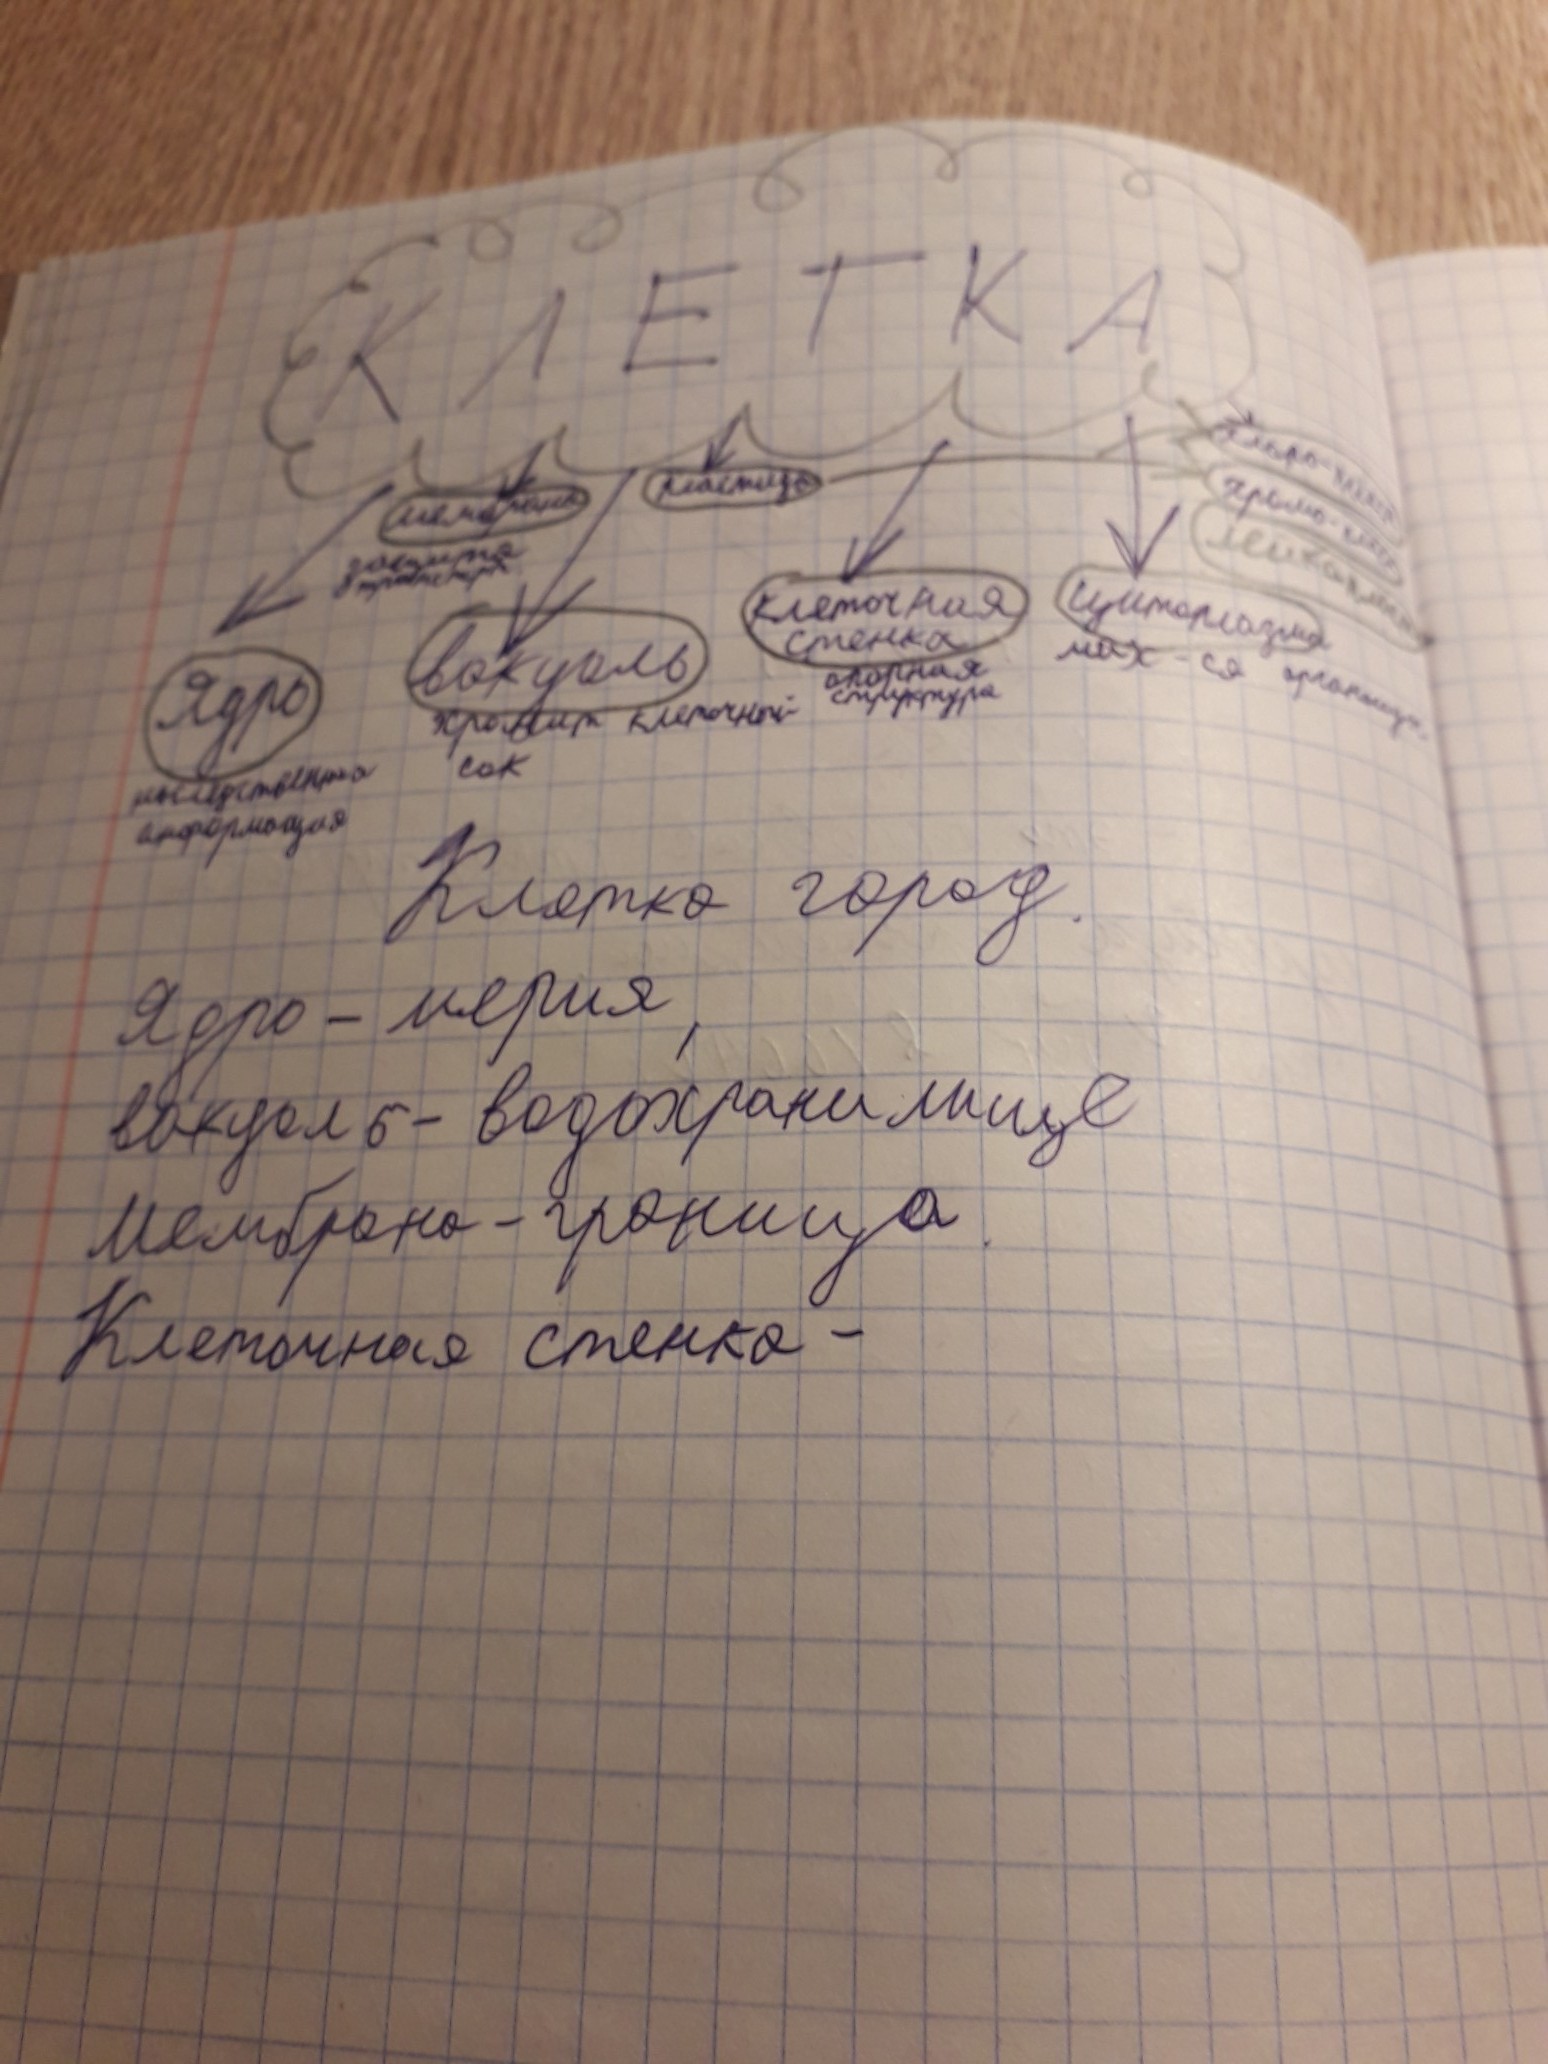 КЛЕТКА
мембрана
защита
транспорт
пластиды
хлоро-пласт
хромо-пласт
лейкопласт
Ядро
наследственна
информация
вакуоль
хранит клеточный
сок
клеточная
стенка
опорная
структура
цитоплазма
нах-ся органоиды
Клетка город.
Ядро – мерия,
вакуоль – водохранилище
Мембрана – граница.
Клеточная стенка –